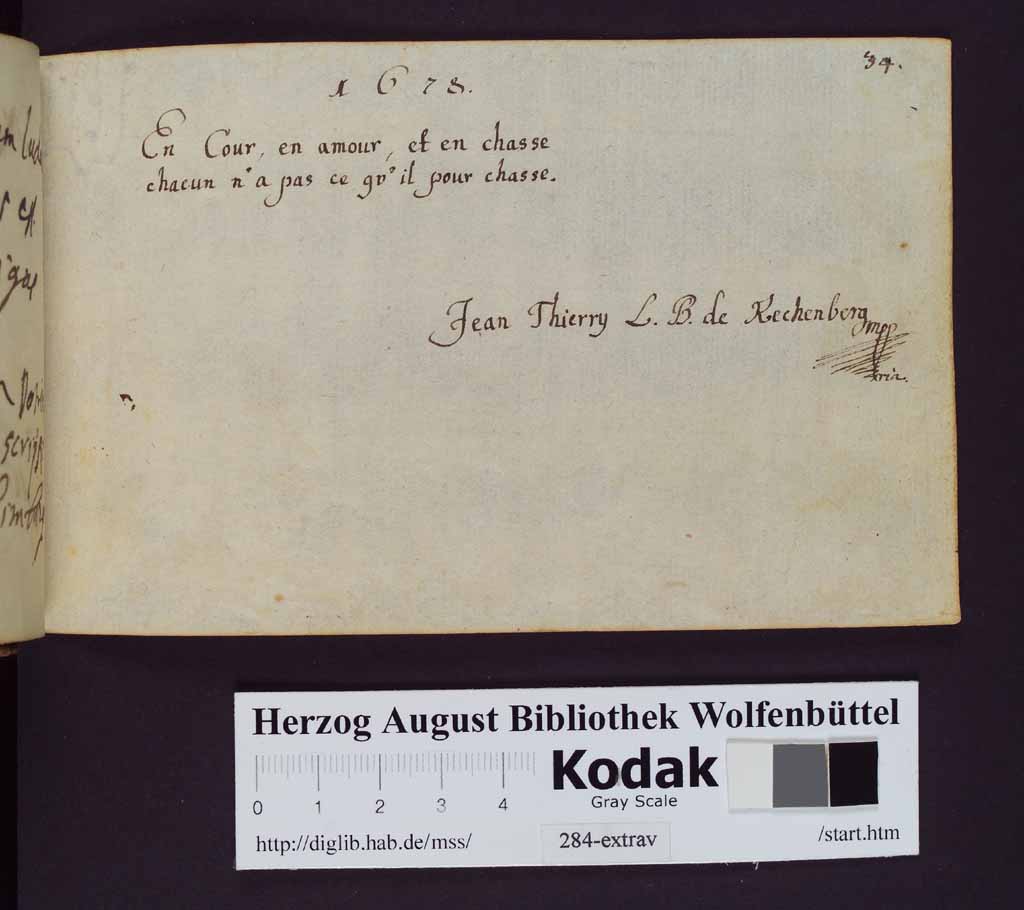 34.
1678.
En Cour, en amour, et en chasse
chacun n'a pas ce qv'il pour chasse.
Jean Thierry L. B. de Rechenberg
mpp
ria.
Herzog August Bibliothek Wolfenbüttel
Kodak
Gray Scale
0 1 2 3 4
http://diglib.hab.de/mss/ 284-extrav /start.htm